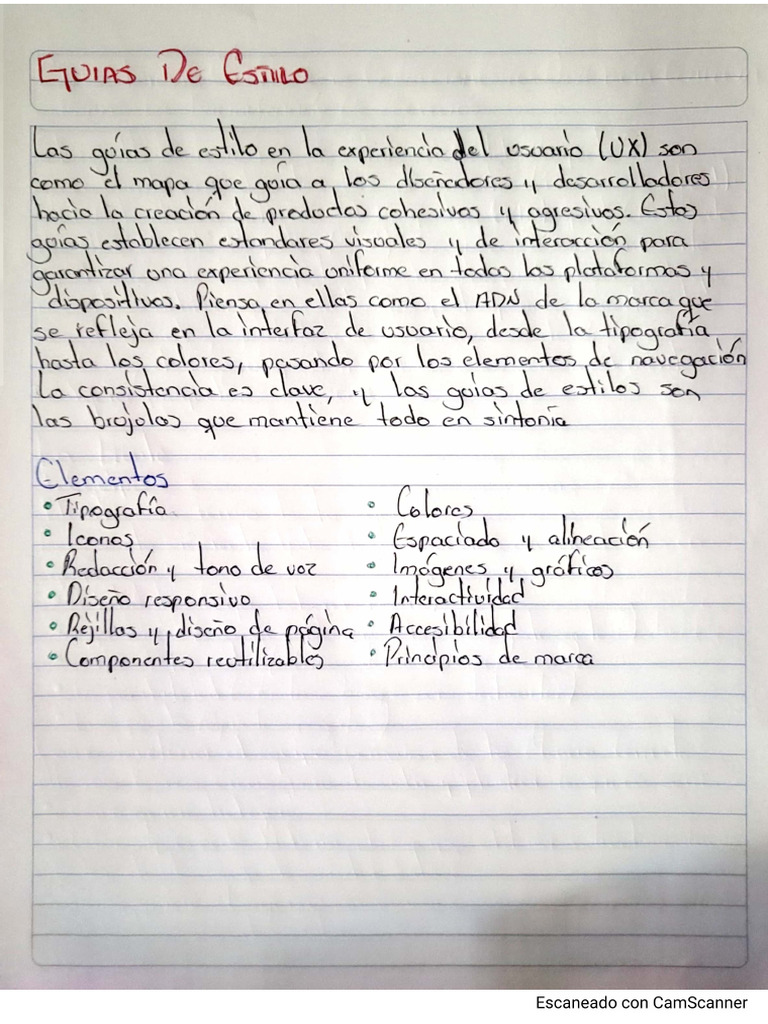 GUIAS DE ESTILO
Las guías de estilo en la experiencia del usuario (UX) son
como el mapa que guía a los diseñadores y desarrolladores
hacia la creación de productos cohesivos y agresivos. Estas
guías establecen estandares visuales y de interacción para
garantizar una experiencia uniforme en todas las plataformas y
dispositivos. Piensa en ellas como el ADN de la marca que
se refleja en la interfaz de usuario, desde la tipografía
hasta los colores, pasando por los elementos de navegación
la consistencia es clave, y las guías de estilos son
las brujulas que mantiene todo en sintonía
Elementos
• Tipografía
• Iconos
• Redacción y tono de voz
• Diseño responsivo
• Rejillas y diseño de página
• Componentes reutilizables
• Colores
• Espaciado y alineación
• Imágenes y gráficos
• Interactividad
• Accesibilidad
• Principios de marca
Escaneado con CamScanner